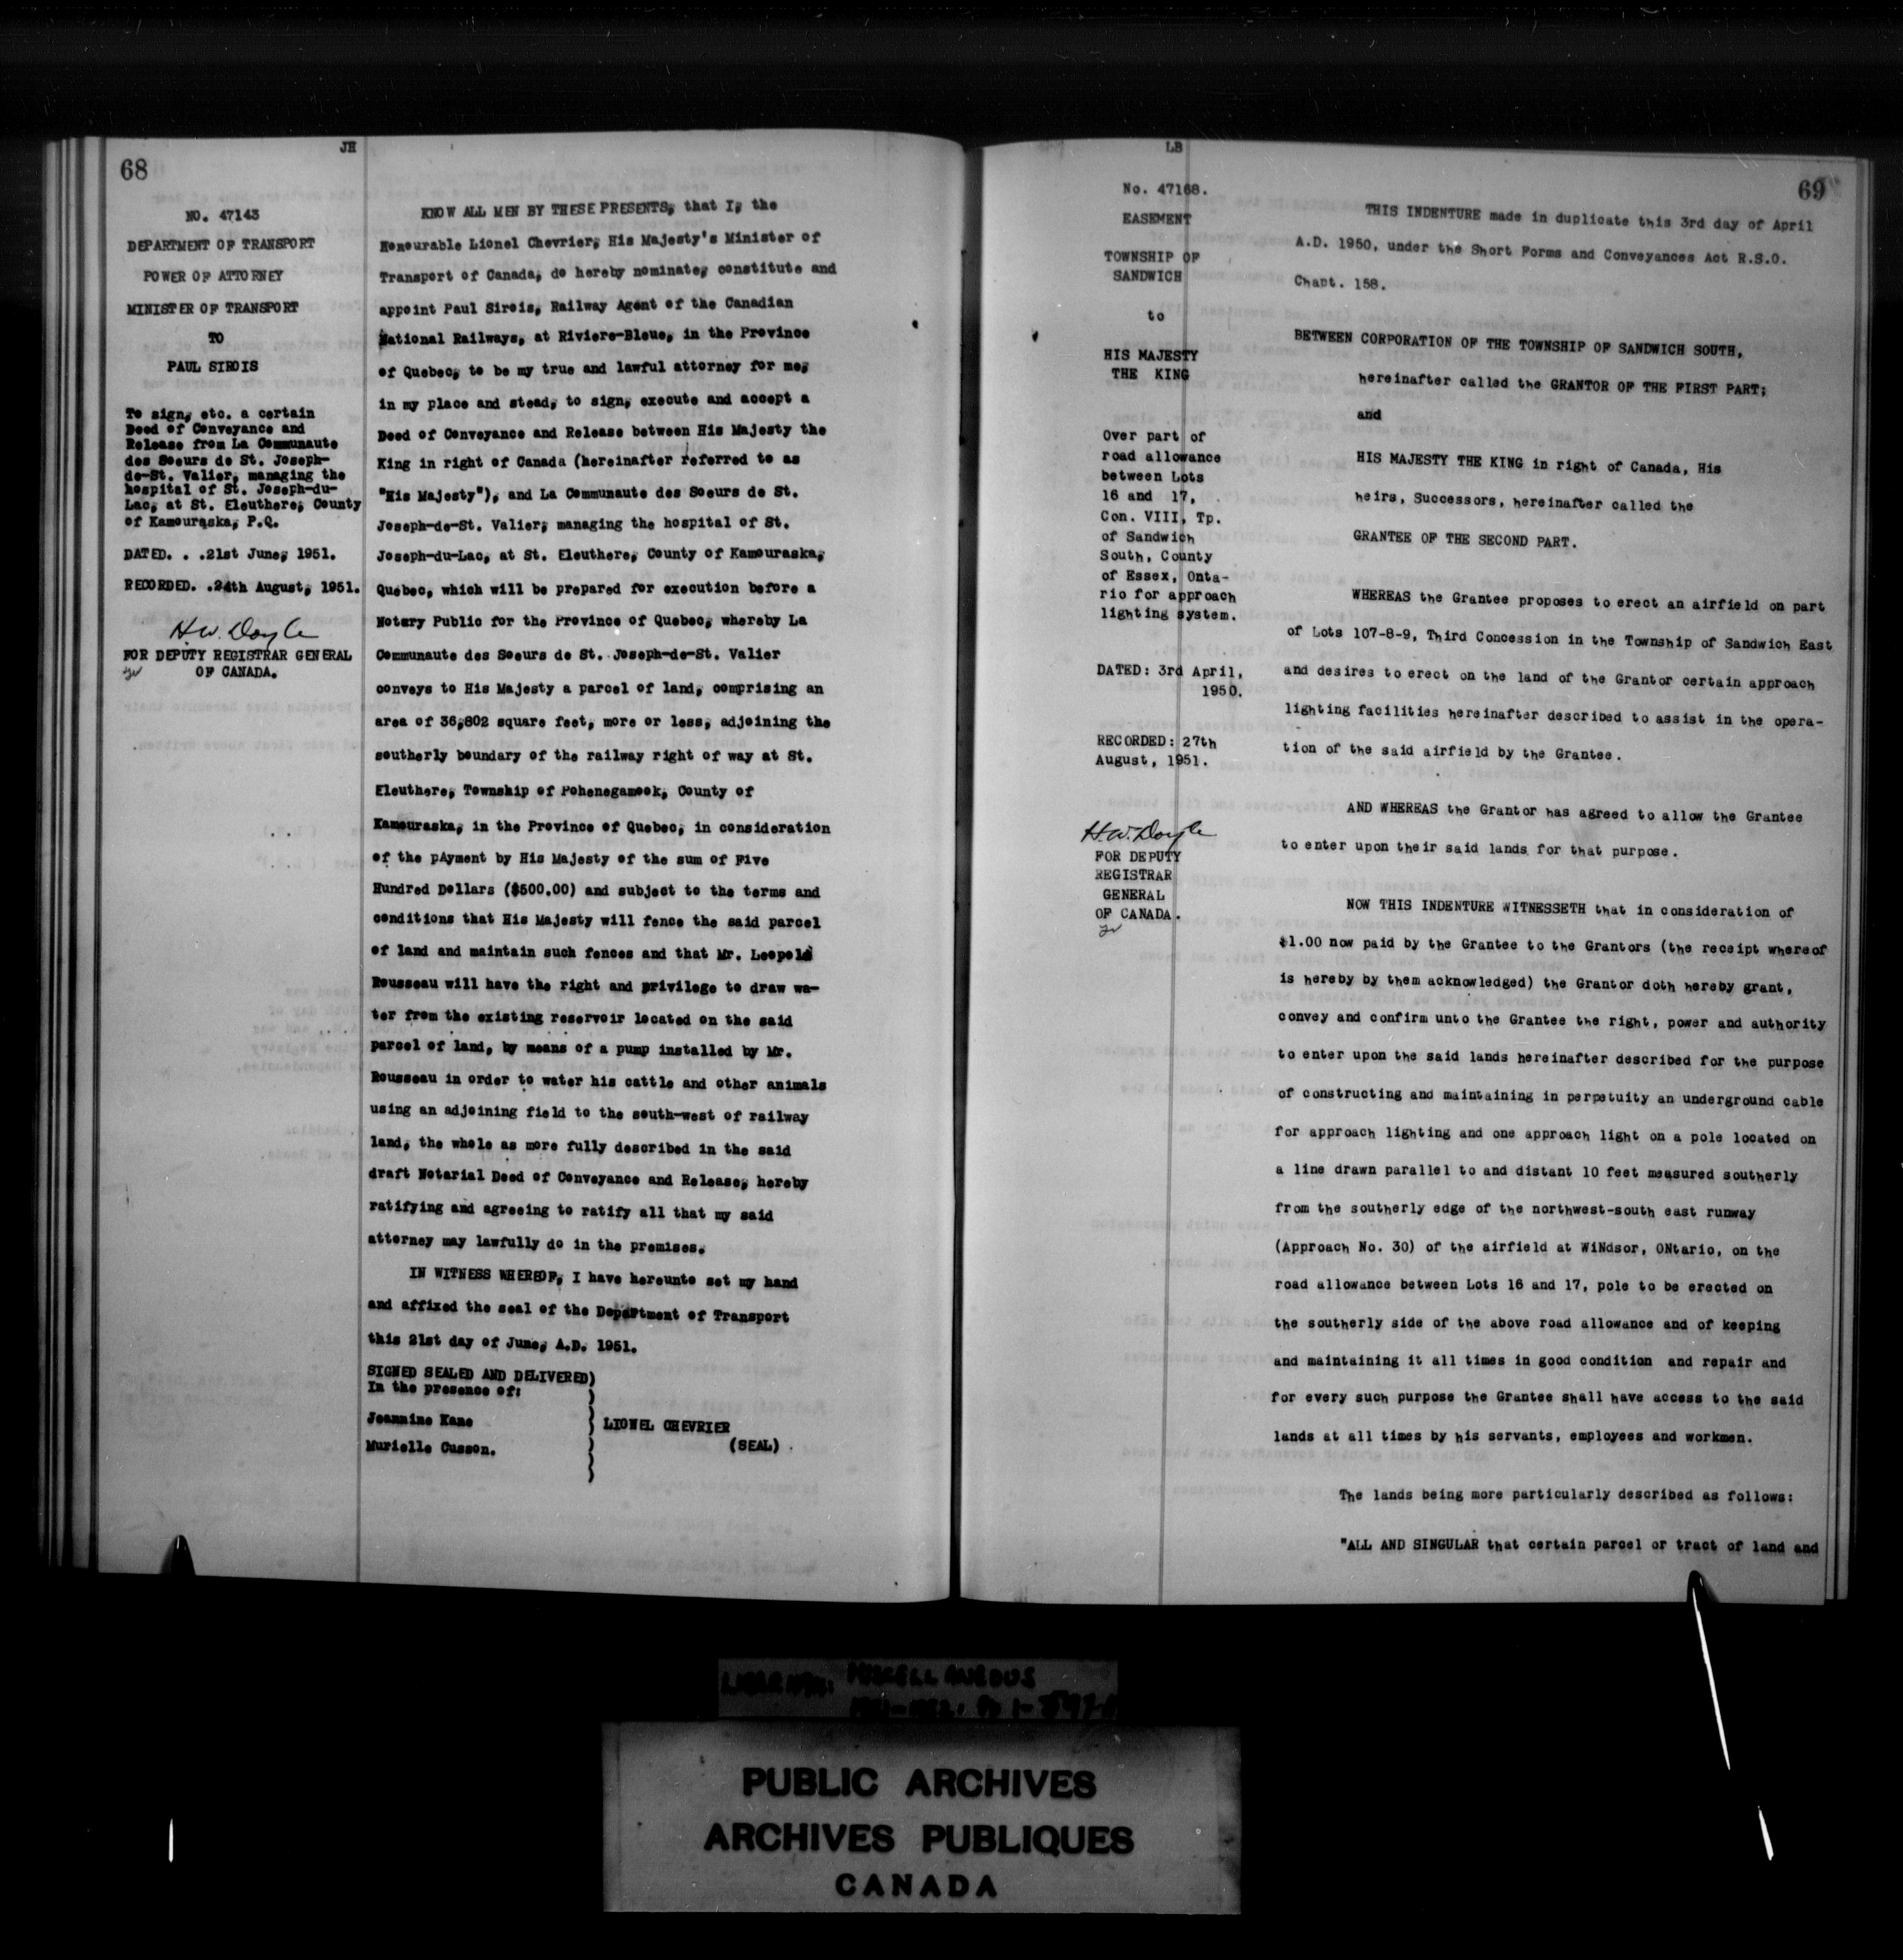 JH
68
NO. 47143
DEPARTMENT OF TRANSPORT
POWER OF ATTORNEY
MINISTER OF TRANSPORT
TO
PAUL SIROIS
To sign, etc. a certain
Deed of Conveyance and
Release from La Communaute
des Soeurs de St. Joseph-
de-St. Valier, managing the
hospital of St. Joseph-du-
Lac, at St. Eleuthere, County
of Kamouraska, P.Q.
DATED. . .21st June, 1951.
RECORDED. .24th August, 1951.
H.W. Doyle
FOR DEPUTY REGISTRAR GENERAL
OF CANADA.
KNOW ALL MEN BY THESE PRESENTS, that I, the
Honourable Lionel Chevrier, His Majesty's Minister of
Transport of Canada, do hereby nominate, constitute and
appoint Paul Sirois, Railway Agent of the Canadian
National Railways, at Riviere-Bleue, in the Province
of Quebec, to be my true and lawful attorney for me,
in my place and stead, to sign, execute and accept a
Deed of Conveyance and Release between His Majesty the
King in right of Canada (hereinafter referred to as
"His Majesty"), and La Communaute des Soeurs de St.
Joseph-de-St. Valier, managing the hospital of St.
Joseph-du-Lac, at St. Eleuthere, County of Kamouraska,
Quebec, which will be prepared for execution before a
Notary Public for the Province of Quebec, whereby La
Communaute des Soeurs de St. Joseph-de-St. Valier
conveys to His Majesty a parcel of land, comprising an
area of 36,802 square feet, more or less, adjoining the
southerly boundary of the railway right of way at St.
Eleuthere, Township of Pohenegamook, County of
Kamouraska, in the Province of Quebec, in consideration
of the pAyment by His Majesty of the sum of Five
Hundred Dollars ($500.00) and subject to the terms and
conditions that His Majesty will fence the said parcel
of land and maintain such fences and that Mr. Leopold
Rousseau will have the right and privilege to draw wa-
ter from the existing reservoir located on the said
parcel of land, by means of a pump installed by Mr.
Rousseau in order to water his cattle and other animals
using an adjoining field to the south-west of railway
land, the whole as more fully described in the said
draft Notarial Deed of Conveyance and Release, hereby
ratifying and agreeing to ratify all that my said
attorney may lawfully do in the premises.
IN WITNESS WHEREOF, I have hereunto set my hand
and affixed the seal of the Department of Transport
this 21st day of June, A.D. 1951.
SIGNED SEALED AND DELIVERED)
In the presence of: )
Jeannine Kane ) LIONEL CHEVRIER
Murielle Cusson. ) (SEAL)
LB
69
No. 47168.
EASEMENT
TOWNSHIP OF
SANDWICH
to
HIS MAJESTY
THE KING
Over part of
road allowance
between Lots
16 and 17,
Con. VIII, Tp.
of Sandwich
South, County
of Essex, Onta-
rio for approach
lighting system.
DATED: 3rd April,
1950.
RECORDED: 27th
August, 1951.
H.W. Doyle
FOR DEPUTY
REGISTRAR
GENERAL
OF CANADA.
THIS INDENTURE made in duplicate this 3rd day of April
A.D. 1950, under the Short Forms and Conveyances Act R.S.O.
Chapt. 158.
BETWEEN CORPORATION OF THE TOWNSHIP OF SANDWICH SOUTH,
hereinafter called the GRANTOR OF THE FIRST PART;
and
HIS MAJESTY THE KING in right of Canada, His
heirs, Successors, hereinafter called the
GRANTEE OF THE SECOND PART.
WHEREAS the Grantee proposes to erect an airfield on part
of Lots 107-8-9, Third Concession in the Township of Sandwich East
and desires to erect on the land of the Grantor certain approach
lighting facilities hereinafter described to assist in the opera-
tion of the said airfield by the Grantee.
AND WHEREAS the Grantor has agreed to allow the Grantee
to enter upon their said lands for that purpose.
NOW THIS INDENTURE WITNESSETH that in consideration of
$1.00 now paid by the Grantee to the Grantors (the receipt whereof
is hereby by them acknowledged) the Grantor doth hereby grant,
convey and confirm unto the Grantee the right, power and authority
to enter upon the said lands hereinafter described for the purpose
of constructing and maintaining in perpetuity an underground cable
for approach lighting and one approach light on a pole located on
a line drawn parallel to and distant 10 feet measured southerly
from the southerly edge of the northwest-south east runway
(Approach No. 30) of the airfield at WiNdsor, ONtario, on the
road allowance between Lots 16 and 17, pole to be erected on
the southerly side of the above road allowance and of keeping
and maintaining it all times in good condition and repair and
for every such purpose the Grantee shall have access to the said
lands at all times by his servants, employees and workmen.
The lands being more particularly described as follows:
"ALL AND SINGULAR that certain parcel or tract of land and
MISCELLANEOUS
PUBLIC ARCHIVES
ARCHIVES PUBLIQUES
CANADA